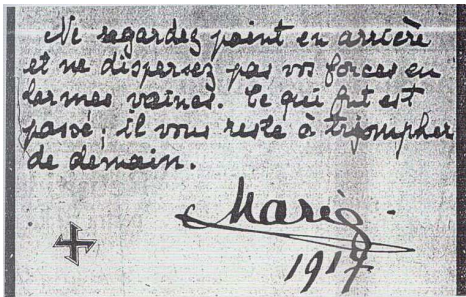 Ne regardez point en arrière
et ne dispersez pas vos forces en
larmes vaines. Ce qui fut est
passé; il vous reste à triompher
de demain.
Marie.
1917